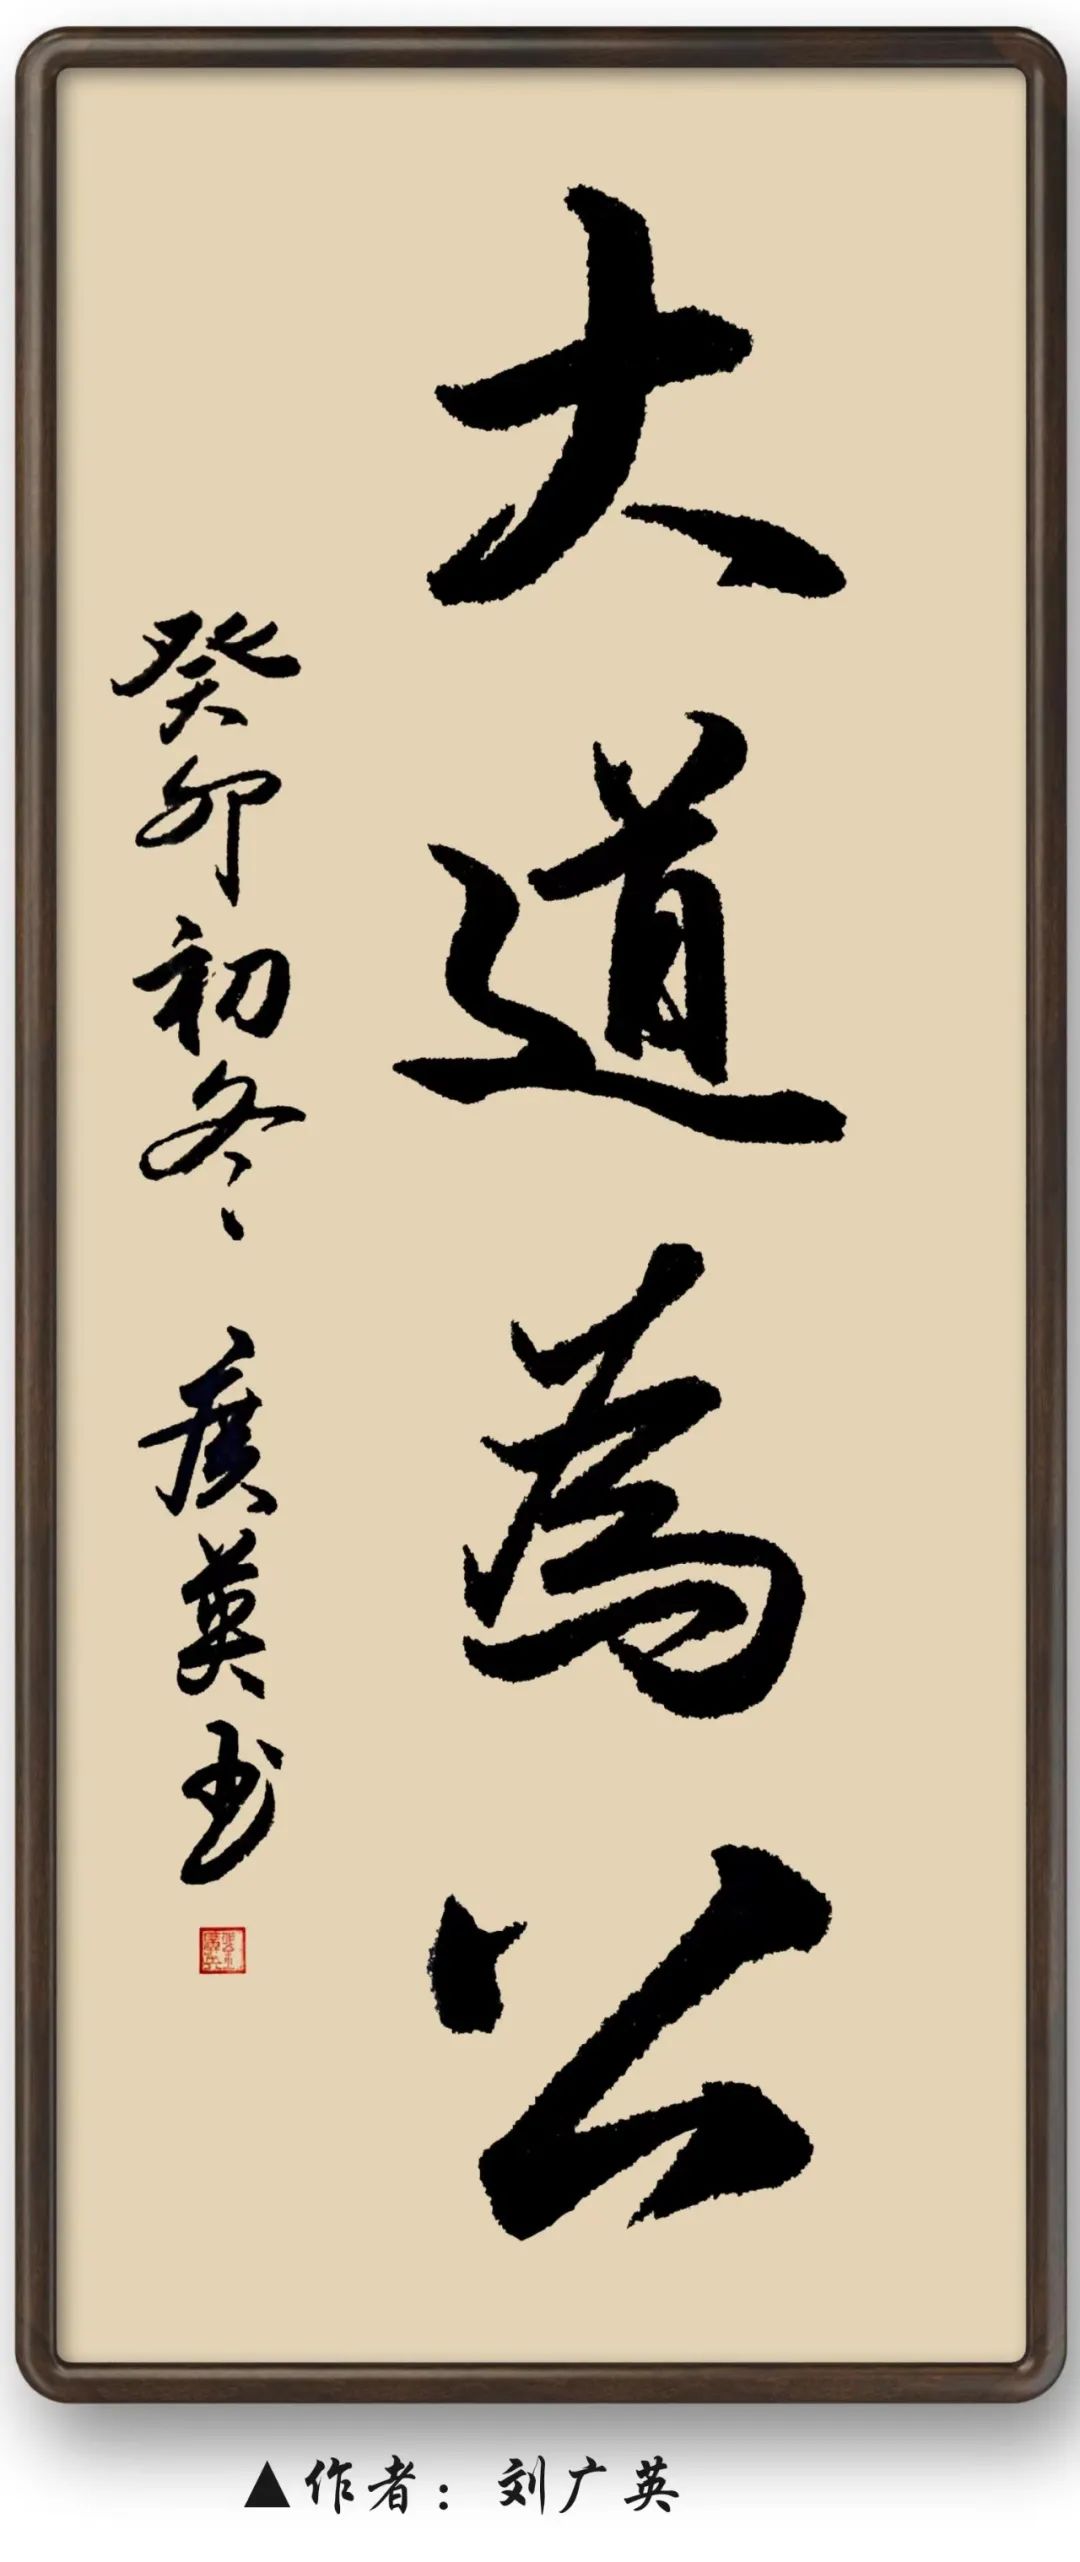 大道為公
癸卯初冬 廣英书
▲作者：刘广英